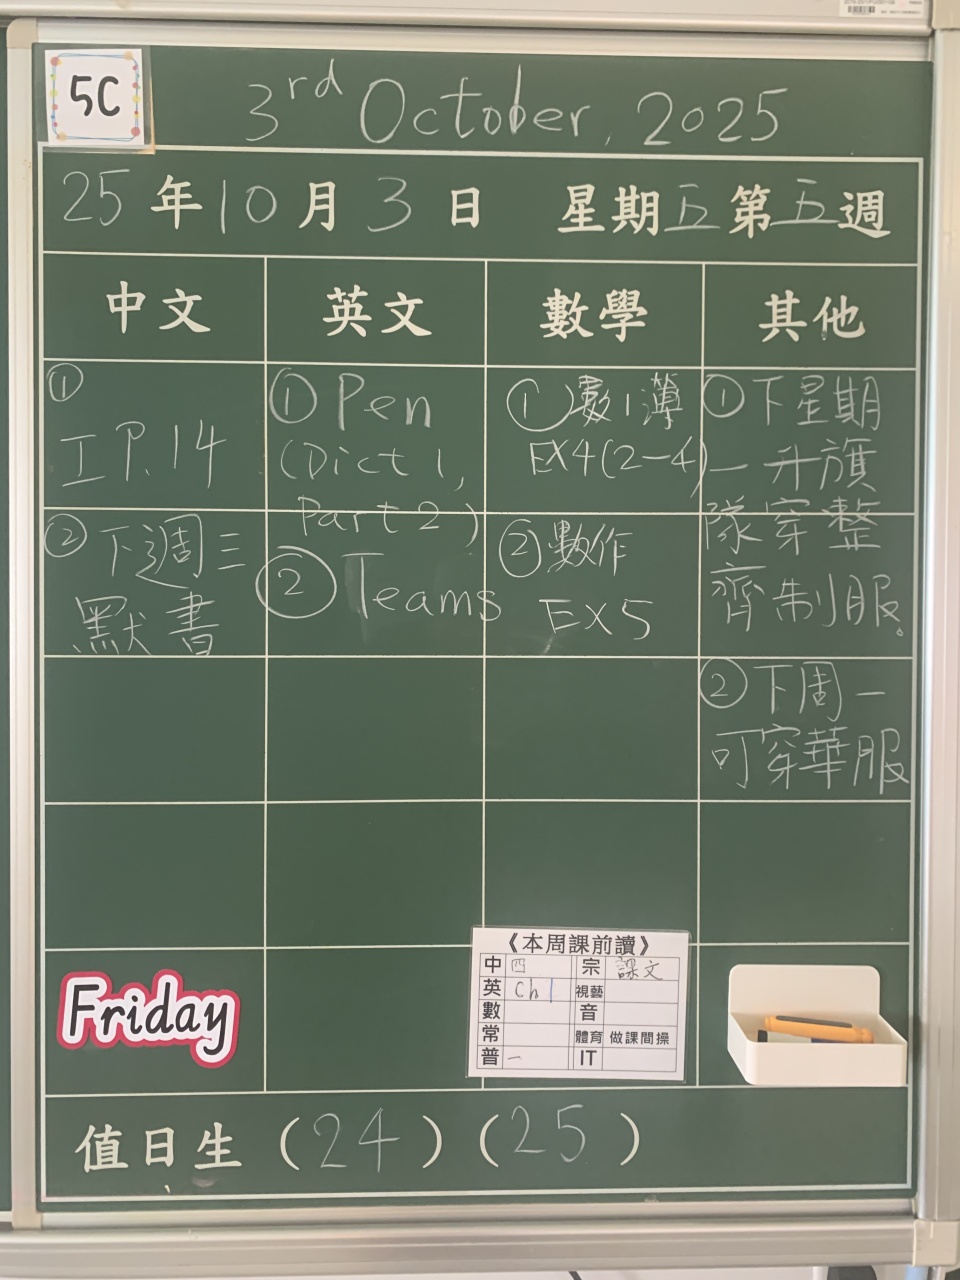 5C
3rd October, 2025
25年10月3日 星期五第五週
中文 英文 數學 其他
①
工P.14
②下週三
默書
①Pen
(Dict 1,
Part 2)
②Teams
①數1簿
EX4(2-4)
②數作
EX5
①下星期
一升旗
隊穿整
齊制服。
②下周一
可穿華服
Friday
《本周課前讀》
中 四 宗 課文
英 Ch 1 視藝
數 音
常 體育 做課間操
普 一 IT
值日生 (24) (25)